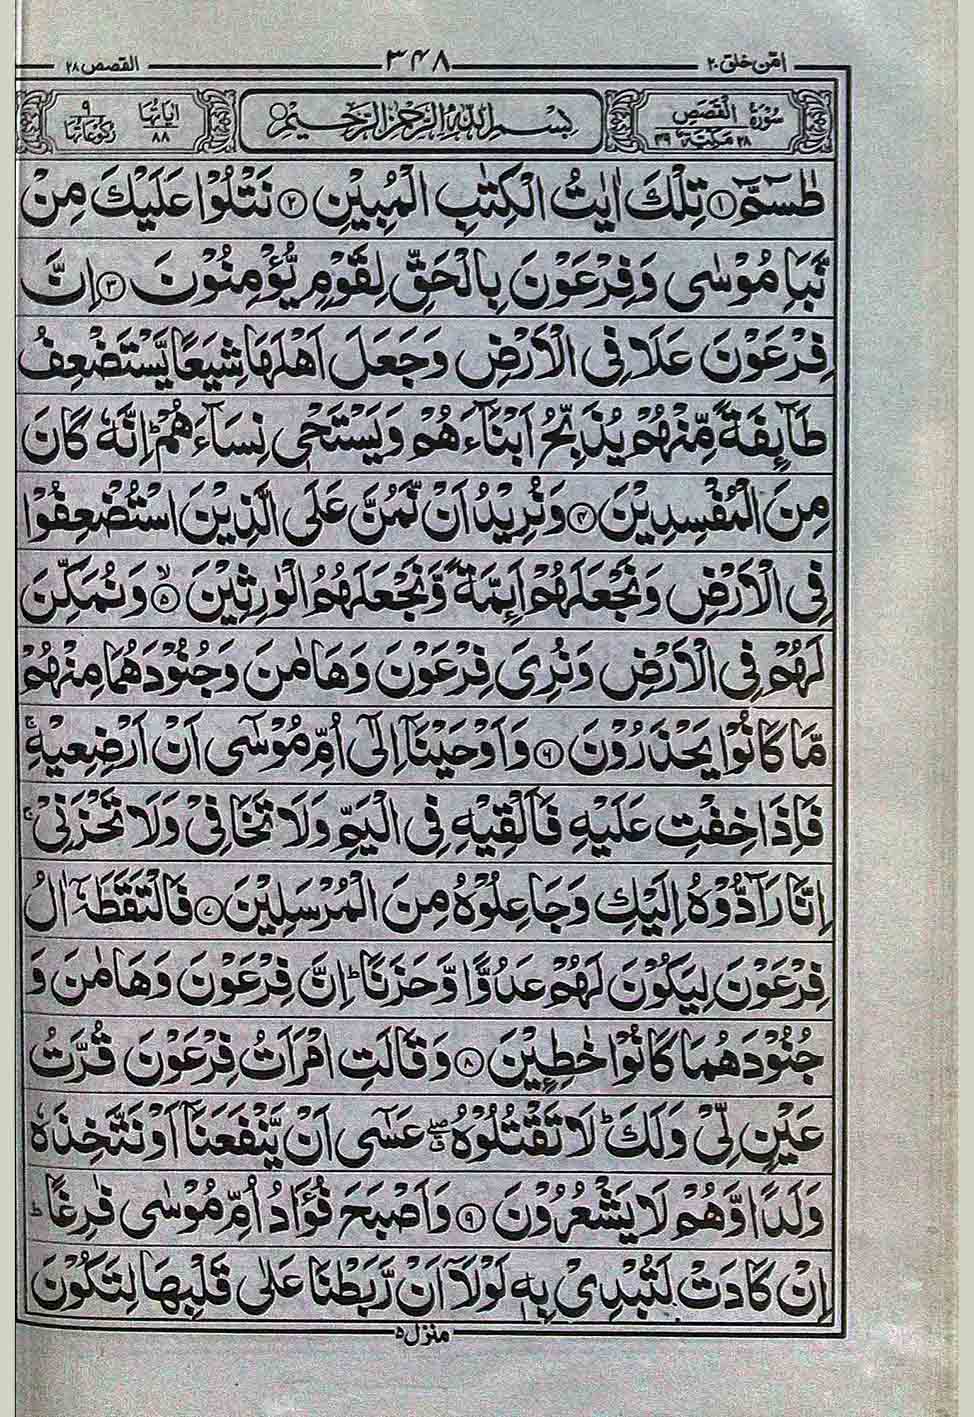 امّن خلق ۲۰ ۳۴۸ القصص ۲۸
سُوْرَةُ الْقَصَصِ ۲۸ مَكِّيَّةٌ ۴۹ بِسْمِ اللّٰهِ الرَّحْمٰنِ الرَّحِيْمِ اٰيَاتُهَا ۸۸ رُكُوْعَاتُهَا ۹
طٰسٓمّٓ ۝۱ تِلْكَ اٰيٰتُ الْكِتٰبِ الْمُبِيْنِ ۝۲ نَتْلُوْا عَلَيْكَ مِنْ
نَّبَاِ مُوْسٰى وَفِرْعَوْنَ بِالْحَقِّ لِقَوْمٍ يُّؤْمِنُوْنَ ۝۳ اِنَّ
فِرْعَوْنَ عَلَا فِى الْاَرْضِ وَجَعَلَ اَهْلَهَا شِيَعًا يَّسْتَضْعِفُ
طَآئِفَةً مِّنْهُمْ يُذَبِّحُ اَبْنَآءَهُمْ وَيَسْتَحْىٖ نِسَآءَهُمْ ؕ اِنَّهٗ كَانَ
مِنَ الْمُفْسِدِيْنَ ۝۴ وَنُرِيْدُ اَنْ نَّمُنَّ عَلَى الَّذِيْنَ اسْتُضْعِفُوْا
فِى الْاَرْضِ وَنَجْعَلَهُمْ اَئِمَّةً وَّنَجْعَلَهُمُ الْوٰرِثِيْنَ ۙ۝۵ وَنُمَكِّنَ
لَهُمْ فِى الْاَرْضِ وَنُرِىَ فِرْعَوْنَ وَهَامٰنَ وَجُنُوْدَهُمَا مِنْهُمْ
مَّا كَانُوْا يَحْذَرُوْنَ ۝۶ وَاَوْحَيْنَآ اِلٰٓى اُمِّ مُوْسٰٓى اَنْ اَرْضِعِيْهِ ۚ
فَاِذَا خِفْتِ عَلَيْهِ فَاَلْقِيْهِ فِى الْيَمِّ وَلَا تَخَافِىْ وَلَا تَحْزَنِىْ ۚ
اِنَّا رَآدُّوْهُ اِلَيْكِ وَجَاعِلُوْهُ مِنَ الْمُرْسَلِيْنَ ۝۷ فَالْتَقَطَهٗٓ اٰلُ
فِرْعَوْنَ لِيَكُوْنَ لَهُمْ عَدُوًّا وَّحَزَنًا ؕ اِنَّ فِرْعَوْنَ وَهَامٰنَ وَ
جُنُوْدَهُمَا كَانُوْا خٰطِئِيْنَ ۝۸ وَقَالَتِ امْرَاَتُ فِرْعَوْنَ قُرَّتُ
عَيْنٍ لِّىْ وَلَكَ ؕ لَا تَقْتُلُوْهُ ۖق عَسٰٓى اَنْ يَّنْفَعَنَآ اَوْ نَتَّخِذَهٗ
وَلَدًا وَّهُمْ لَا يَشْعُرُوْنَ ۝۹ وَاَصْبَحَ فُؤَادُ اُمِّ مُوْسٰى فٰرِغًا ؕ
اِنْ كَادَتْ لَتُبْدِىْ بِهٖ لَوْلَآ اَنْ رَّبَطْنَا عَلٰى قَلْبِهَا لِتَكُوْنَ
منزل ۵